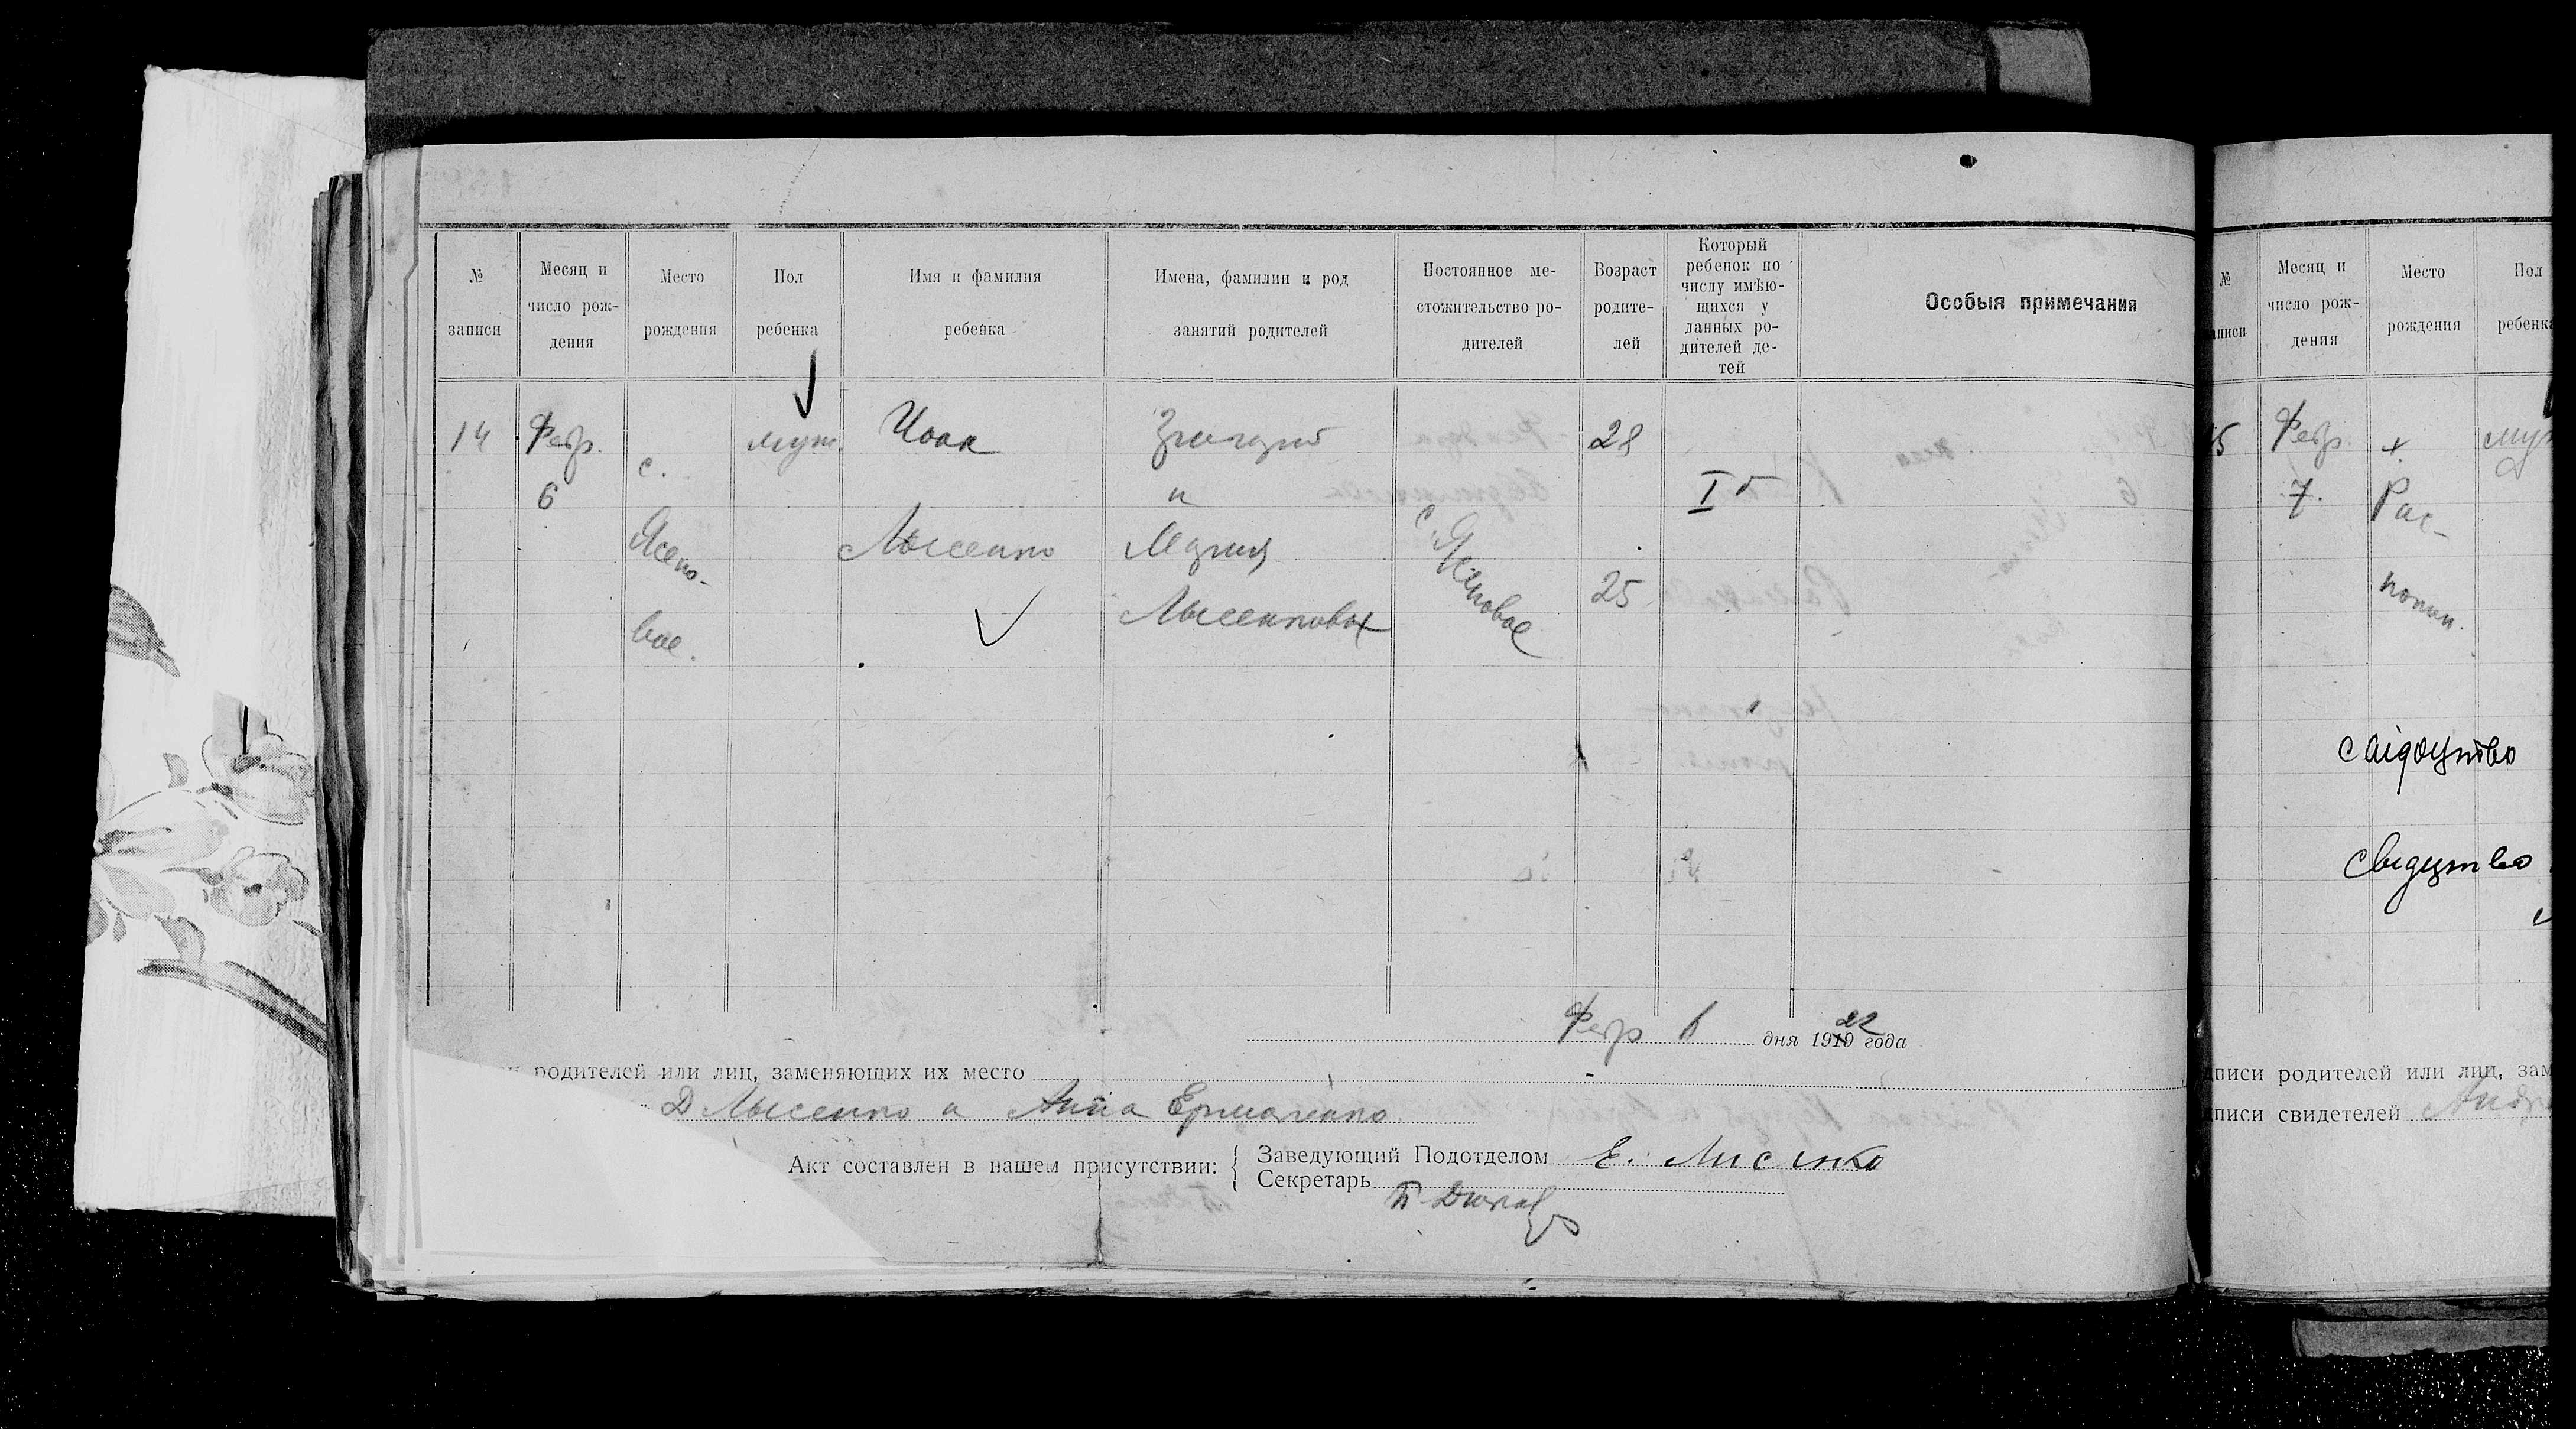 № записи
Месяц и число рождения
Место рождения
Пол ребенка
Имя и фамилия ребенка
Имена, фамилии и род занятий родителей
Постоянное местожительство родителей
Возраст родителей
Который ребенок по числу имѣющихся у данных родителей детей
Особыя примечания
14 Февр. муж. Иоан 28
6 с. и I й
Ясено- Лысенко Мария с. Ясеновое 25
вое. Лысенковы
Февр 6 дня 1922 года
родителей или лиц, заменяющих их место
Д Лысенко и Анна Ермоленко
Акт составлен в нашем присутствии: { Заведующий Подотделом Е. Лисенко
Секретарь
№ записи
Месяц и число рождения
Место рождения
Пол ребенка
15 Февр х. муж
7. Рас-
попин.
свідоцтво
Свидутво
дписи родителей или лиц, зам
дписи свидетелей